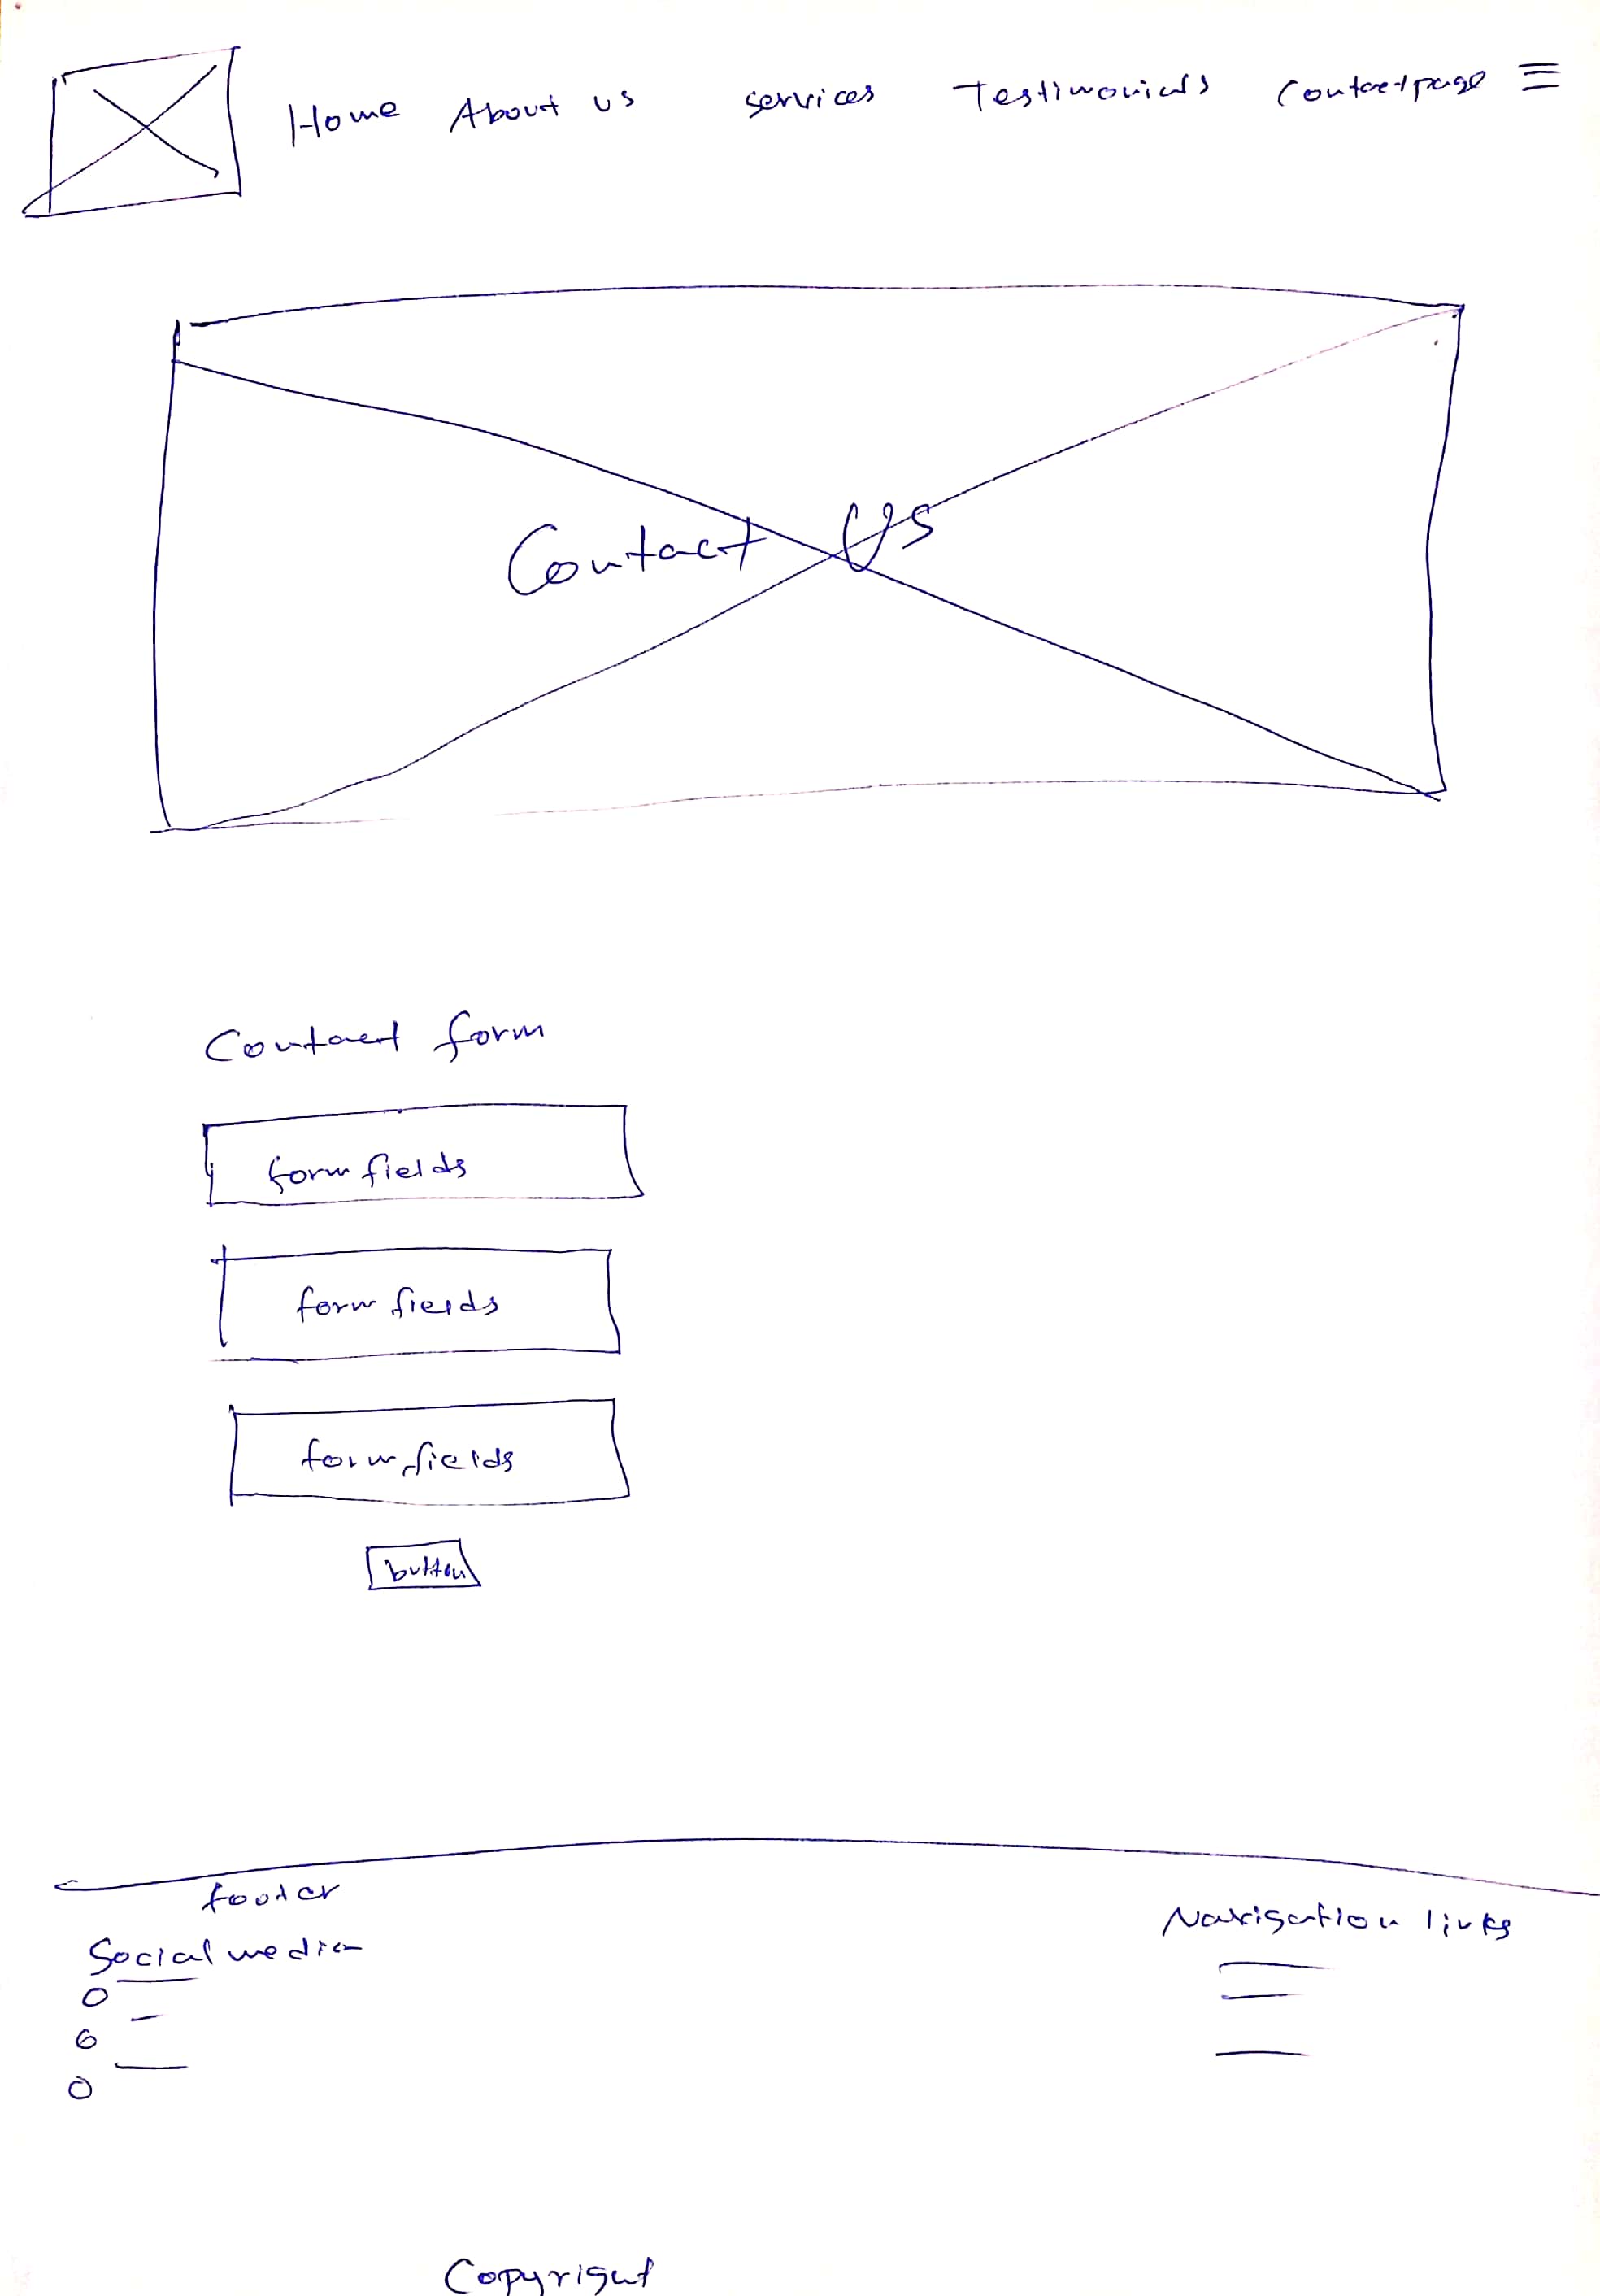 Home About us services Testimonials Contact page
Contact Us
Contact form
form fields
form fields
form fields
button
footer
Social media
Navigation links
Copyright